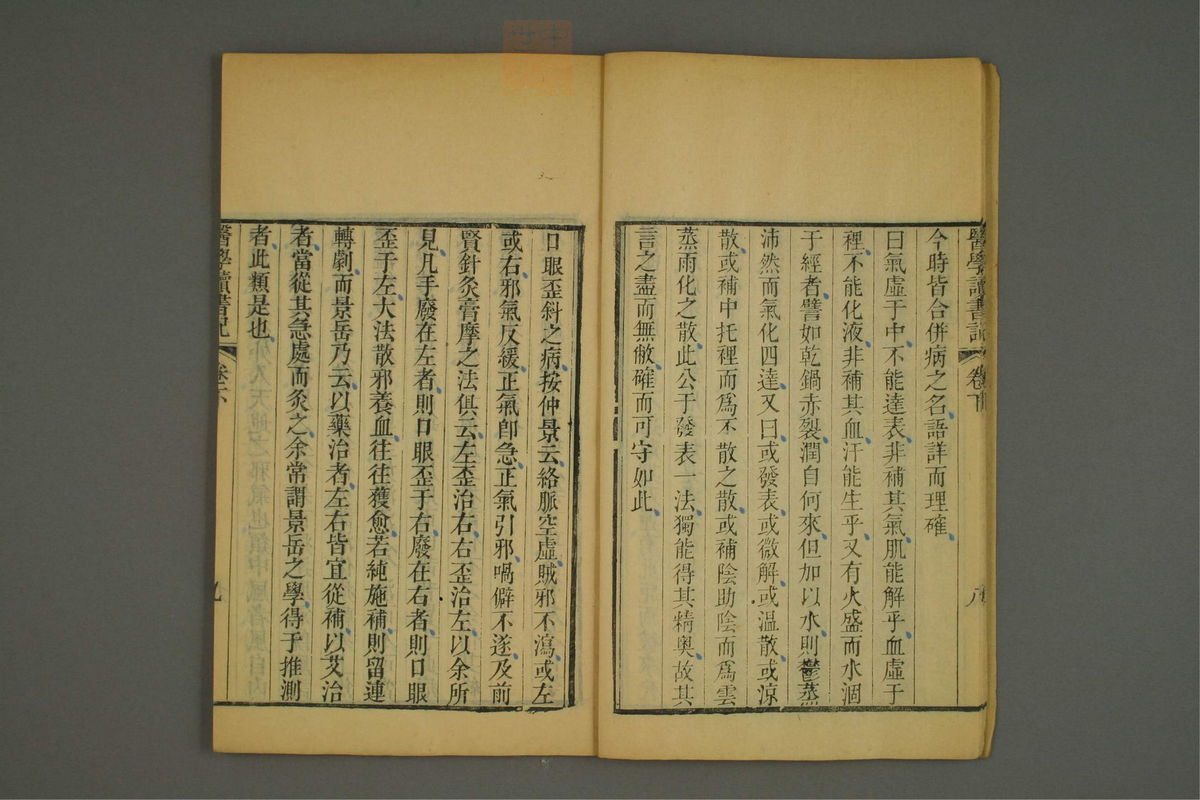 醫學讀書記 卷下
今時皆合併病之名語詳而理確
曰氣虛于中不能達表非補其氣肌能解乎血虛于
裡不能化液非補其血汗能生乎又有火盛而水涸
于經者譬如乾鍋赤裂潤自何來但加以水則鬱蒸
沛然而氣化四達又曰或發表或微解或溫散或涼
散或補中托裡而爲不散之散或補陰助陰而爲雲
蒸雨化之散此公于發表一法獨能得其精奥故其
言之盡而無敝確而可守如此
口眼歪斜之病按仲景云絡脈空虛賊邪不瀉或左
或右邪氣反緩正氣卽急正氣引邪喎僻不遂及前
賢針灸膏摩之法俱云左歪治右右歪治左以余所
見凡手廢在左者則口眼歪于右廢在右者則口眼
歪于左大法散邪養血往往獲愈若純施補則留連
轉劇而景岳乃云以藥治者左右皆宜從補以艾治
者當從其急處而灸之余常謂景岳之學得于推測
者此類是也
醫學讀書記 卷下 九